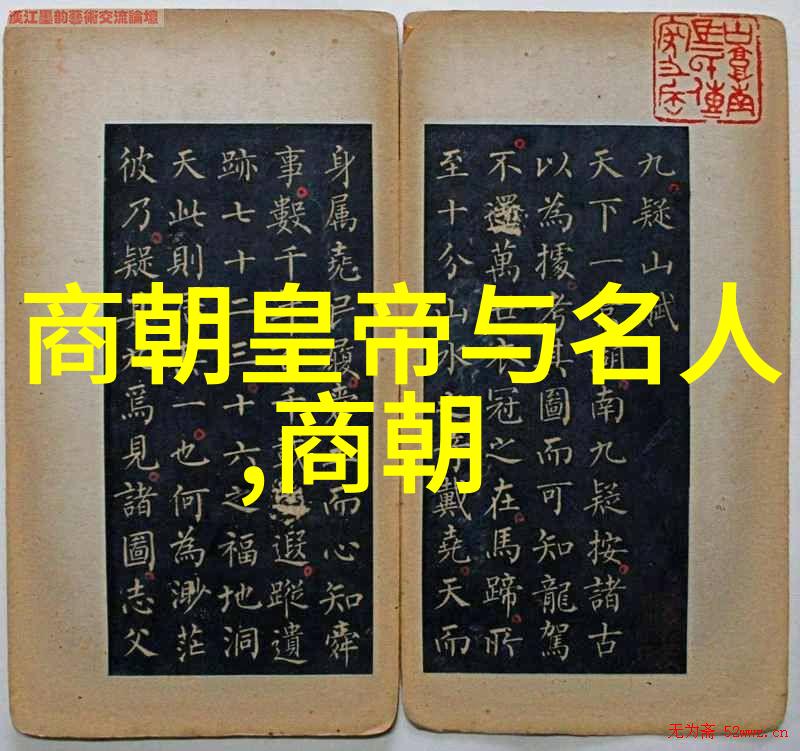 漢江墨韵藝術交流論壇
商朝皇帝与名人
,商朝
九疑山賦
天下一南九疑按諸古
以為據考其圖而可知龍駕
不還萬世衣冠之在馬蹄所
至十分山水戴堯天而
身属堯履而心知舜
事數千遐蹤遺
跡七十二三十六之福地洞
天此則一也何為渺茫
彼乃疑焉見諸圖志父
无为斋 52wwz.cn